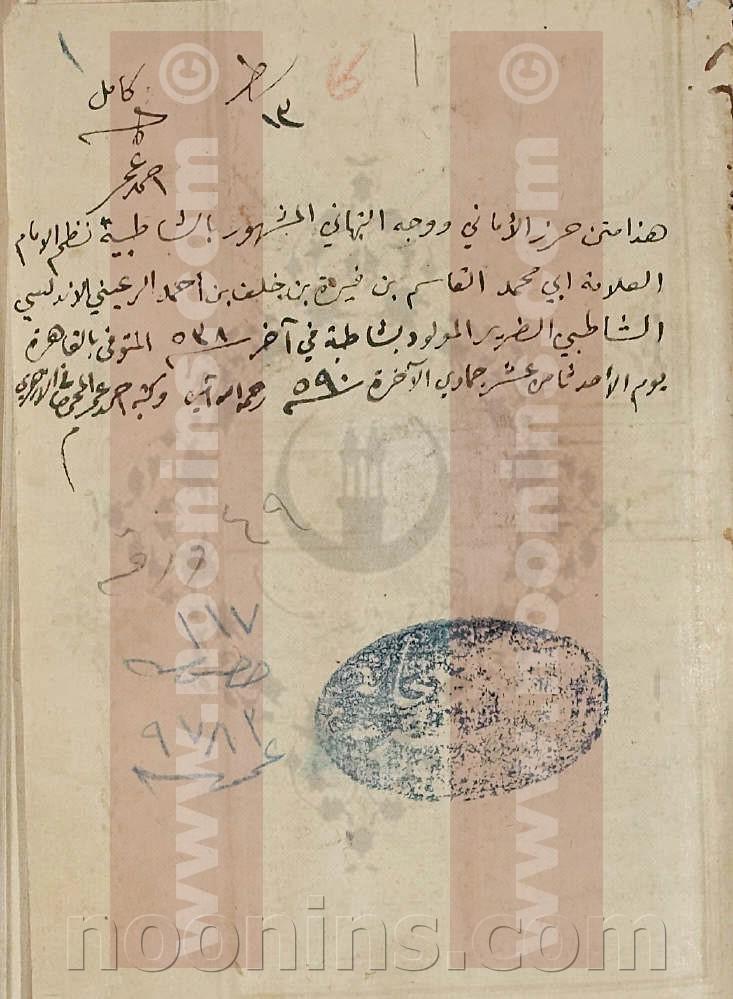 كامل
١٣
احمد عمر
هذا متن حرز الأماني ووجه التهاني المشهور بالشاطبية نظم الامام
العلامة ابي محمد القاسم بن فيرة بن خلف بن أحمد الرعيني الاندلسي
الشاطبي الضرير المولود بشاطبة في آخر سنة ٥٣٨ المتوفى بالقاهرة
يوم الأحد ثامن عشر جمادي الآخرة سنة ٥٩٠ رحمه الله آمين وكتبه احمد عمر المحمصاني الازهري
م
٤٩
١١٧
خصوصية
٩٧٨٢
عمومية
www.noonins.com ©
www.noonins.com ©
noonins.com